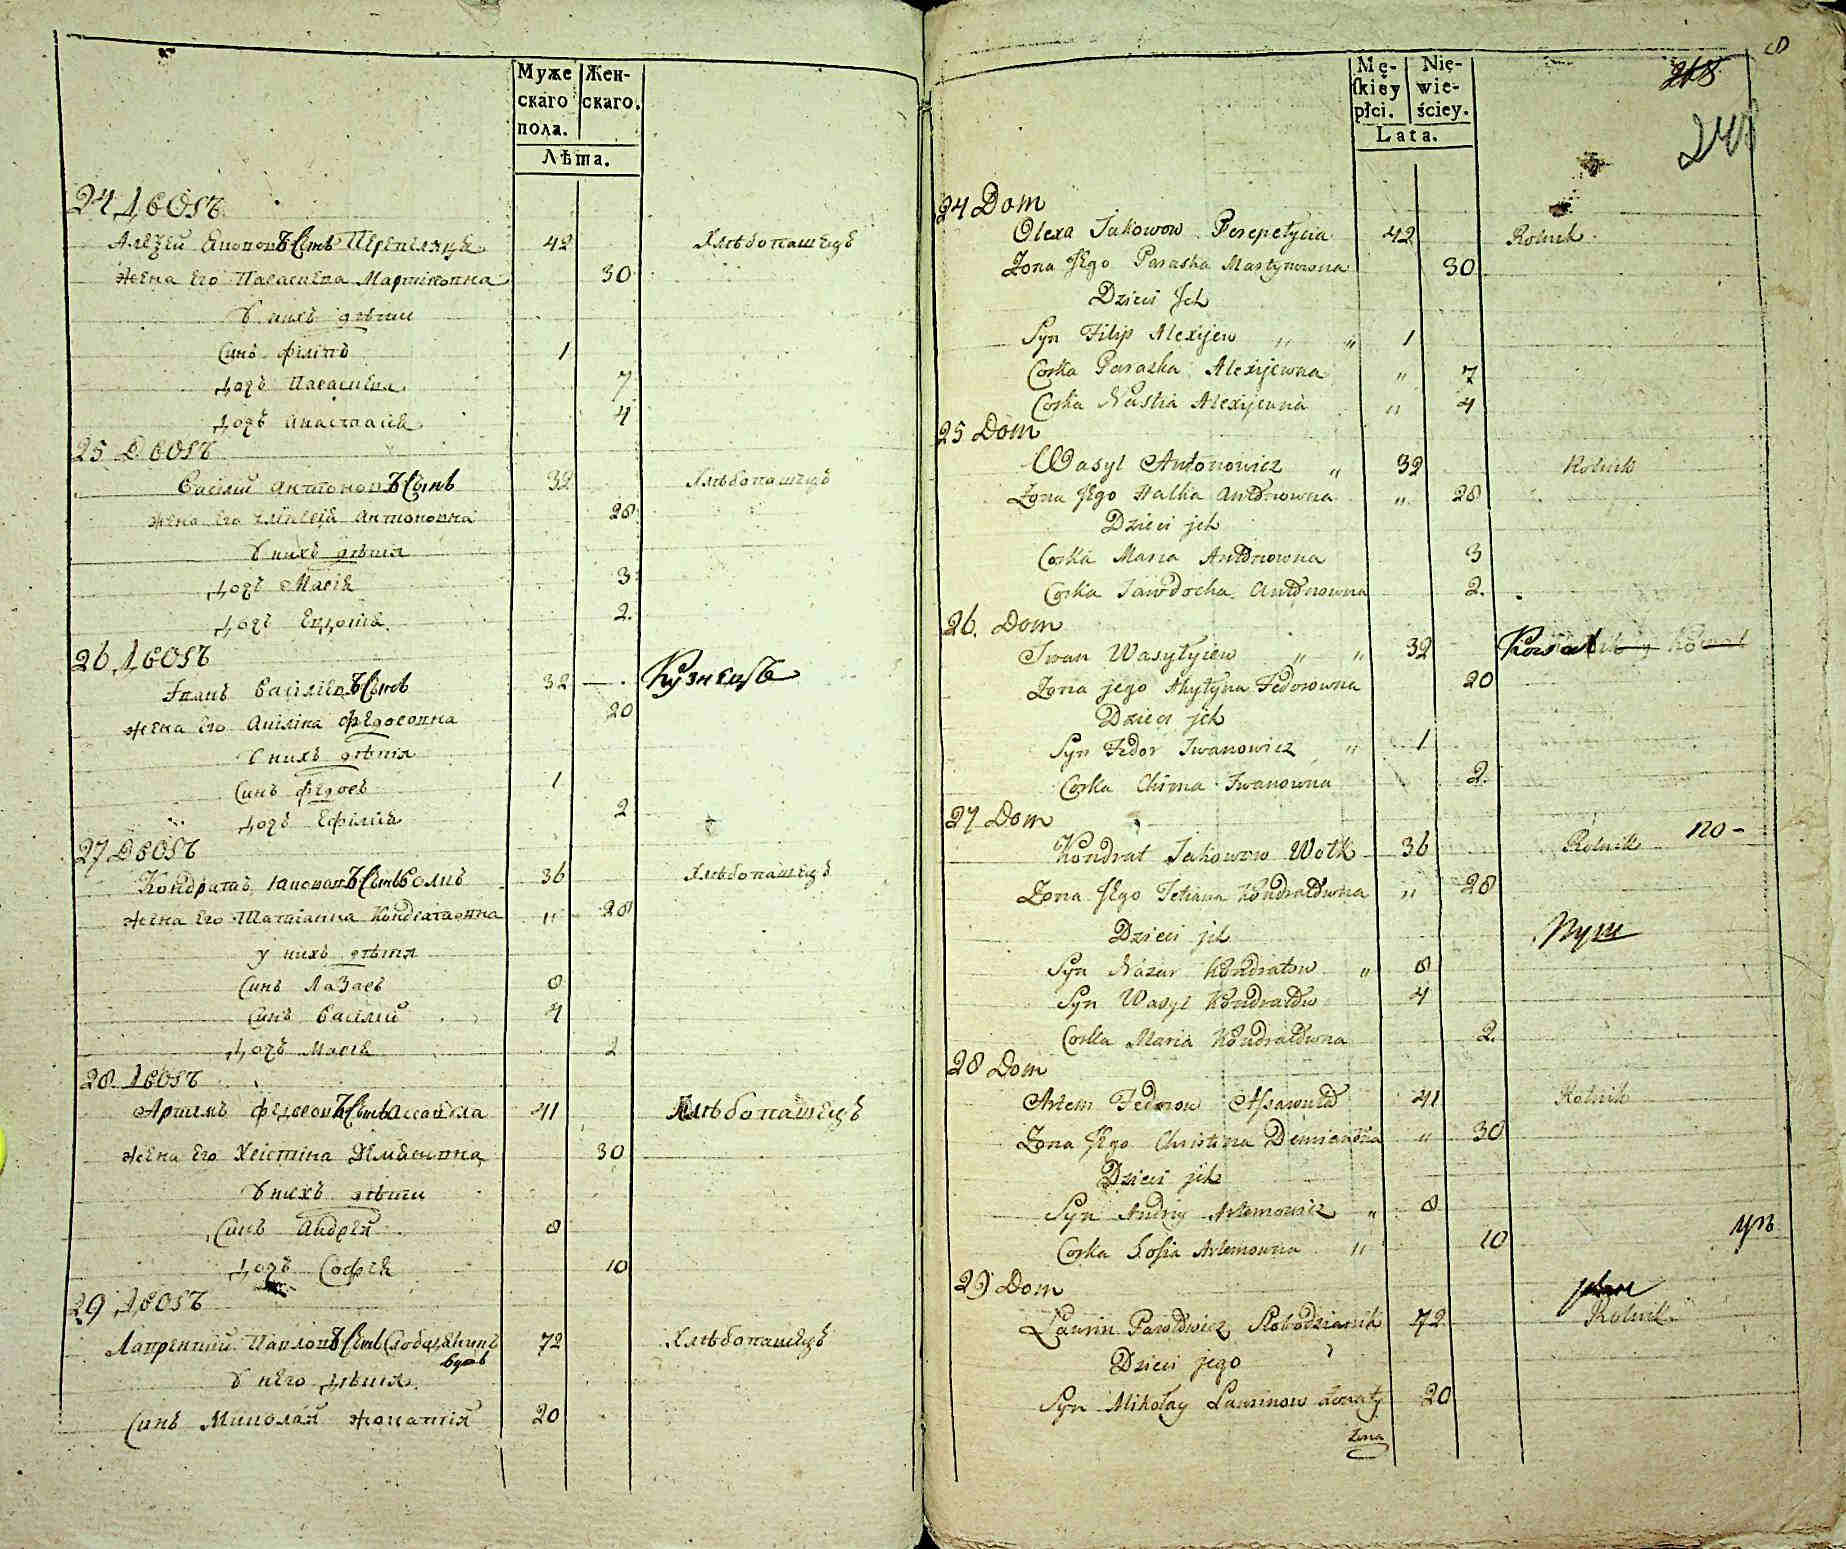 Муже
скаго
пола.
Жен-
скаго.
Лѣта.
24 Дворъ
Алеѯей Яковов Сынъ Перепелица 42 Хлѣбопашецъ
Жена Его Параскева Мартиновна 30
У нихъ дѣти
Синъ Филипъ 1
Дочъ Параскева 7
Дочъ Анастасія 4
25 Дворъ
Василій Антонов Сынъ 32 Хлѣбопашецъ
Жена Его Антоновна 28
У нихъ дѣтя
Дочъ Марія 3
Дочъ Евдокія 2.
26 Дворъ
Іванъ Васіліев Сынъ 32 Кузнецъ
Жена Его Акиліна Федоровна 20
У нихъ дѣтя
Синъ Федоръ 1
Дочъ 2
27 Дворъ
Кондратъ Іаковов Сынъ Волкъ 36 Хлѣбопашецъ
Жена Его Татіанна Кондратовна " 28
У нихъ дѣтя
Синъ Лазаръ 8
Синъ Василій 4
Дочъ Марія 2
28 Дворъ
Артемъ Федоров Сынъ Ассавула 41 Хлѣбопашецъ
Жена Его Христіна Демяновна 30
У нихъ дѣти
Синъ Андрей 8
Дочъ Софія 10
29 Дворъ
Лаврентий Павлов Сынъ Слободянинъ 72 Хлѣбопашецъ
У Него дѣтя
Синъ Миколай жонатій 20
8
218
240
Mę-
skiey
płci.
Nie-
wie-
ściey.
Lata.
24 Dom
Olexa Jakowow Perepełycia 42 Rolnik
Żona Jego Paraska Martynowna 30
Dzieci Jch
Syn Filip Alexijew " " 1
Corka Paraska Alexijewna " 7
Corka Nastia Alexijewna " 4
25 Dom
Wasyl Antonowicz " 32 Rolnik
Żona Jego Halka Antonowna " 28
Dzieci jch
Corka Maria Antonowna 3
Corka Jawdocha Antonowna 2.
26. Dom
Iwan Wasylyiew " " 32 Kowal
Żona jego Akyłyna Fedorowna 20
Dzieci jch
Syn Fedor Iwanowicz " 1
Corka Chima Iwanowna 2.
27 Dom
Kondrat Jakowow Wołk 36 Rolnik
Żona Jego Tetiana Kondratowna " 28
Dzieci jch
Syn Nazar Kondratow " 8
Syn Wasyl Kondratow 4
Corka Maria Kondratowna 2.
28 Dom
Artem Fedorow Assawuła 41 Rolnik
Żona Jego Christina Demianowna " 30
Dzieci jch
Syn Andriy Artemowicz " 8
Corka Zofia Artemowna " 10
29 Dom
Ławrin Pawłowicz Słobodzianik 72 Rolnik
Dzieci jego
Syn Mikołay Ławrinow żonaty 20
żona